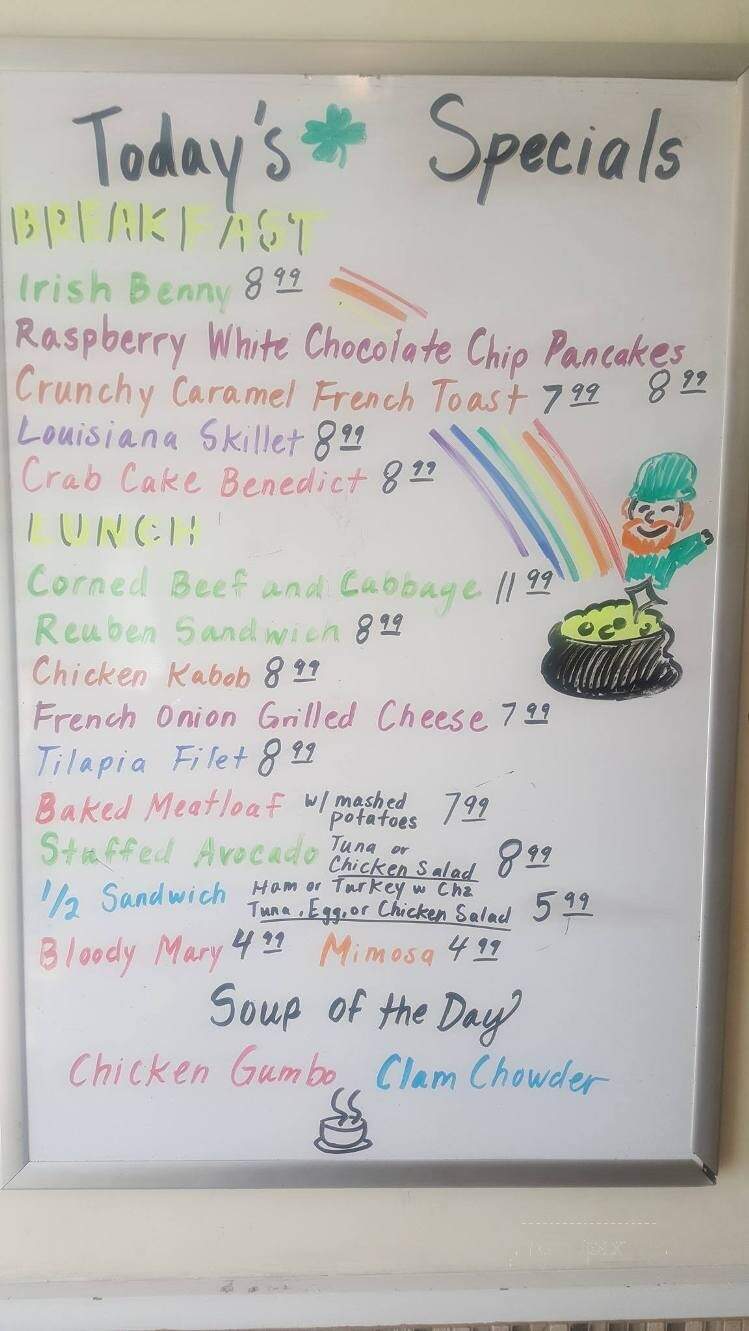 Today's Specials
BREAKFAST
Irish Benny 8 99
Raspberry White Chocolate Chip Pancakes
8 99
Crunchy Caramel French Toast 7 99
Louisiana Skillet 8 99
Crab Cake Benedict 8 99
LUNCH
Corned Beef and Cabbage 11 99
Reuben Sandwich 8 99
Chicken Kabob 8 99
French Onion Grilled Cheese 7 99
Tilapia Filet 8 99
Baked Meatloaf w/ mashed potatoes 7 99
Stuffed Avocado Tuna or Chicken Salad 8 99
1/2 Sandwich Ham or Turkey w Chz
Tuna, Egg, or Chicken Salad 5 99
Bloody Mary 4 99 Mimosa 4 99
Soup of the Day
Chicken Gumbo Clam Chowder